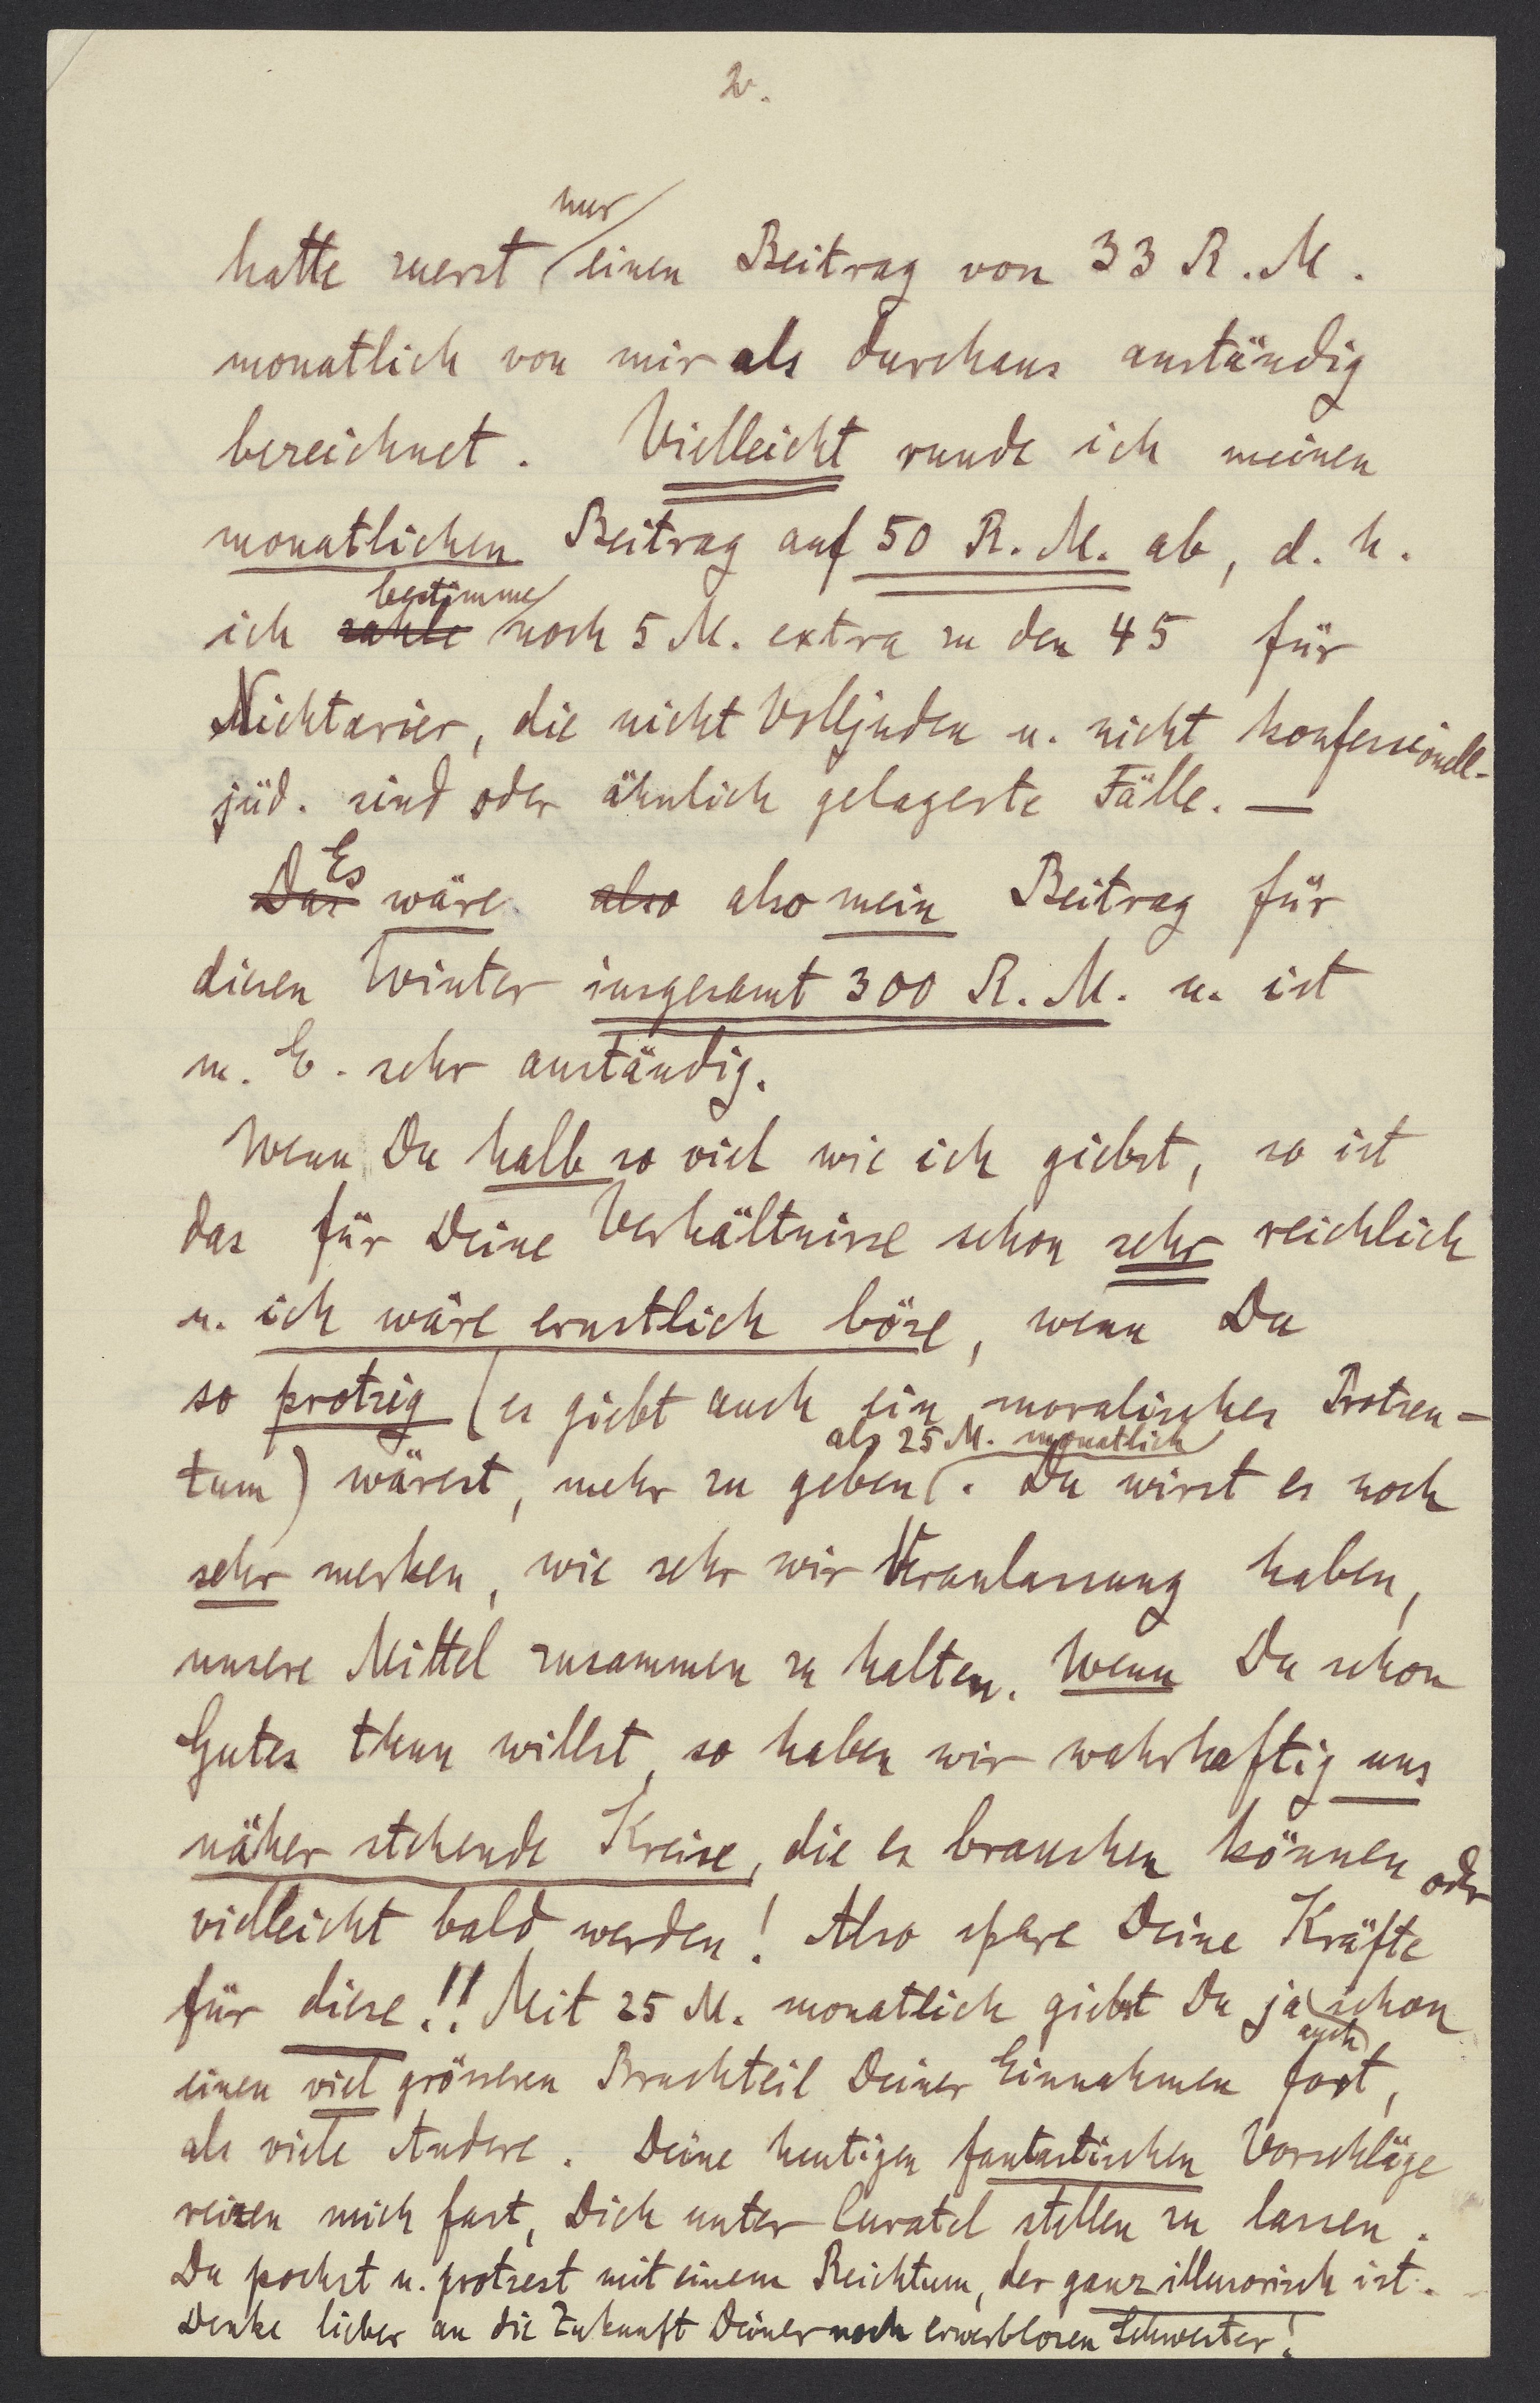 2.
hatte zuerst nur einen Beitrag von 33 R. M.
monatlich von mir als durchaus anständig
bezeichnet. Vielleicht runde ich meinen
monatlichen Beitrag auf 50 R. M. ab, d. h.
ich zahle bestimme noch 5 M. extra zu den 45 für
Nichtarier, die nicht Volljuden u. nicht konfessionell-
jüd. sind oder ähnlich gelagerte Fälle. —
Das Es wäre also also mein Beitrag für
diesen Winter insgesamt 300 R. M. u. ist
m. E. sehr anständig.
Wenn Du halb so viel wie ich giebst, so ist
das für Deine Verhältnisse schon sehr reichlich
u. ich wäre ernstlich böse, wenn Du
so protzig (es giebt auch ein moralisches Protzen-
tum) wärest, mehr zu geben als 25 M. monatlich. Du wirst es noch
sehr merken, wie sehr wir Veranlassung haben,
unsere Mittel zusammen zu halten. Wenn Du schon
Gutes thun willst, so haben wir wahrhaftig uns
näher stehende Kreise, die es brauchen können oder
vielleicht bald werden! Also spare Deine Kräfte
für diese!! Mit 25 M. monatlich giebst Du ja auch schon
einen viel grösseren Bruchteil Deiner Einnahmen fort,
als viele Andere. Deine heutigen fantastischen Vorschläge
reizen mich fast, Dich unter Curatel stellen zu lassen.
Du pochst u. protzest mit einem Reichtum, der ganz illusorisch ist.
Denke lieber an die Zukunft Deiner noch erwerblosen Schwester!